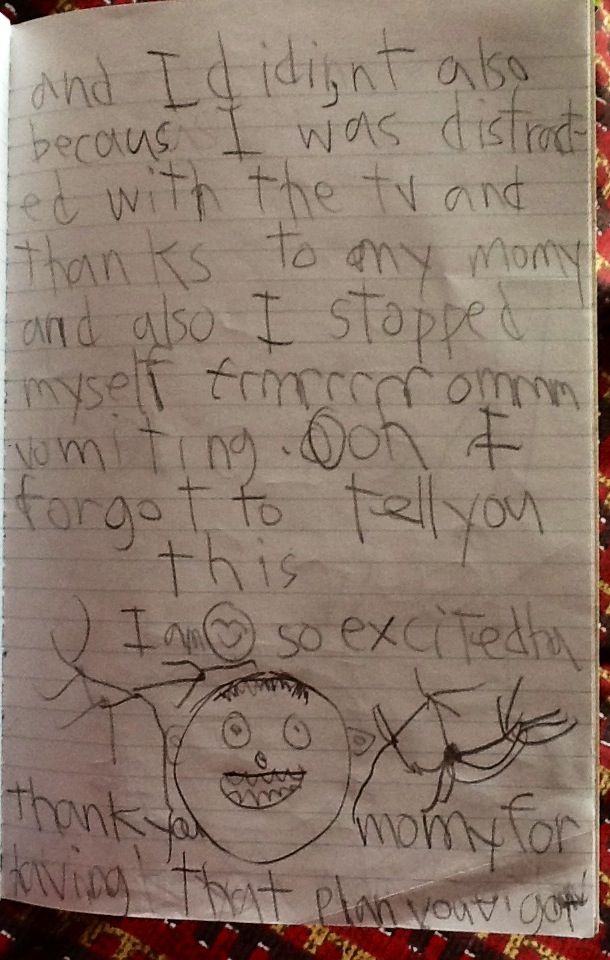 and I didi,nt also
becaus I was distract-
ed with the tv and
thanks to my momy
and also I stopped
myself frmrrrrr ommm
vomiting. Ooh I
forgot to tell you
this
I am so excited ha
thank you momy for
having that plan you